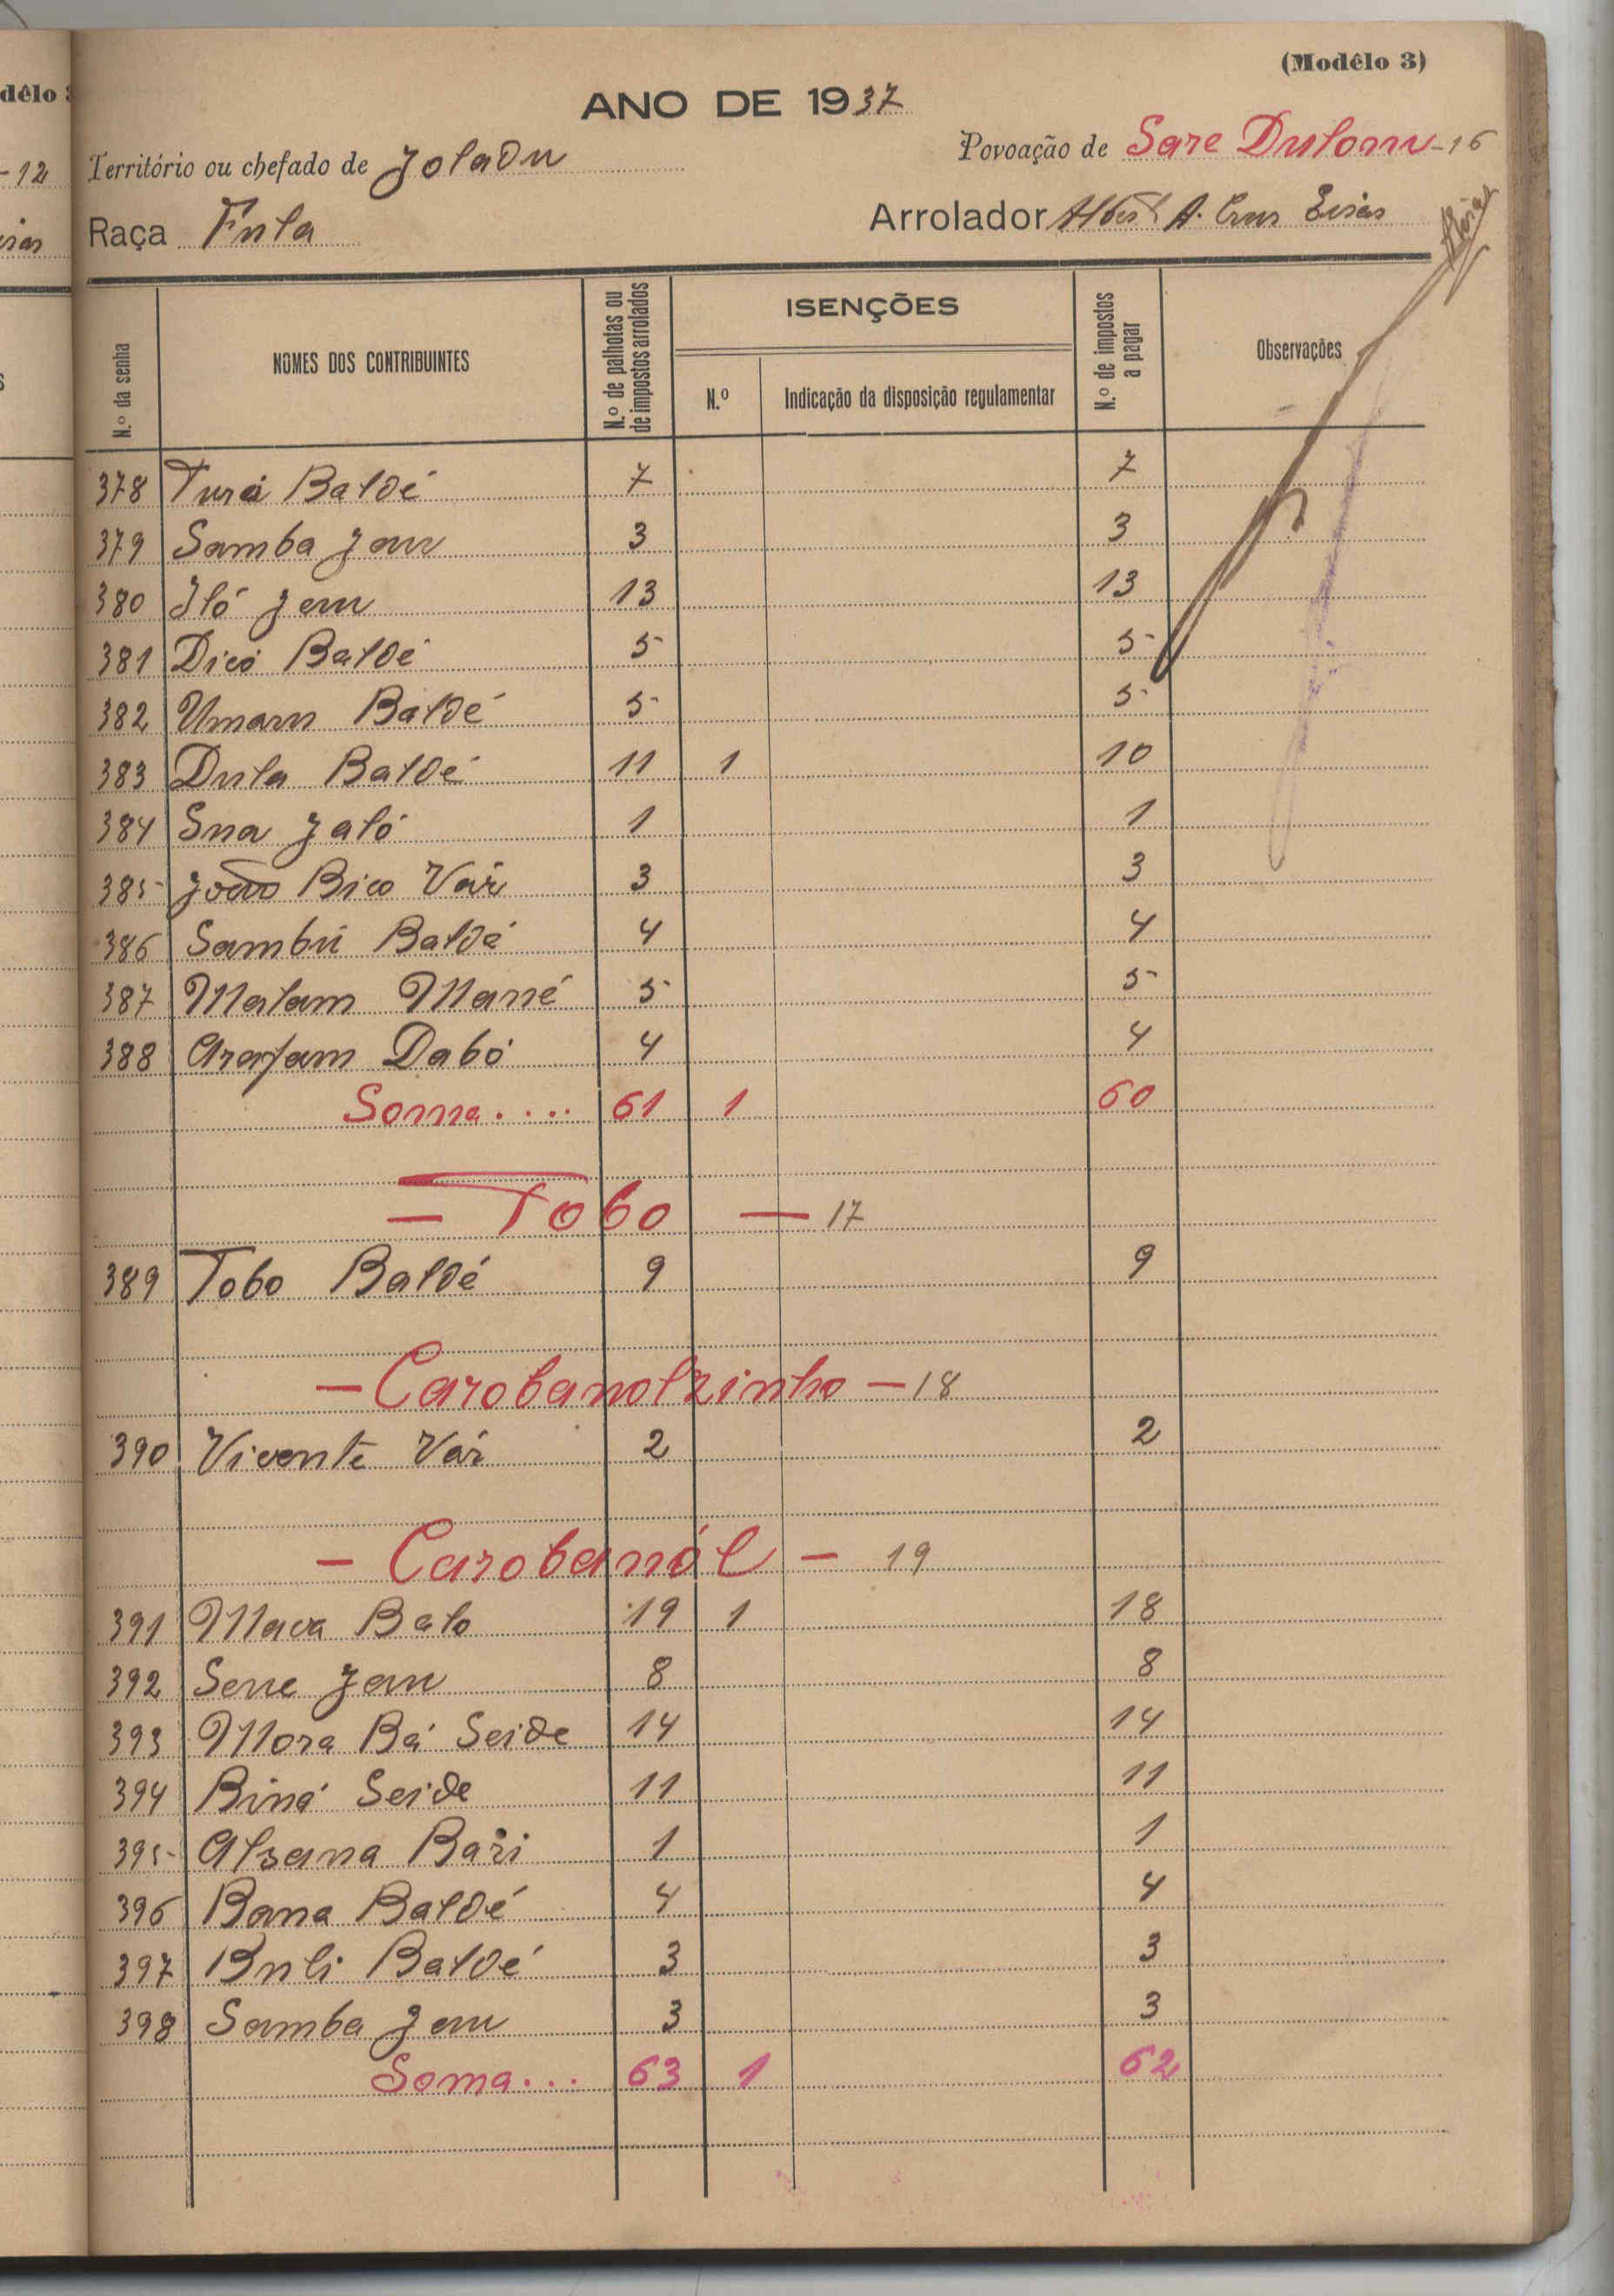 (Modêlo 3)
ANO DE 1937
Território ou chefado de Joladu
Povoação de Sare Dulomu - 16
Raça Fula
Arrolador A. Cruz
N.º da senha
NOMES DOS CONTRIBUINTES
N.º de palhotas ou de impostos arrolados
ISENÇÕES
N.º
Indicação da disposição regulamentar
N.º de impostos a pagar
Observações
378 Turá Baldé 7 7
379 Samba Jau 3 3
380 Iló Jau 13 13
381 Dicó Baldé 5 5
382 Umaru Baldé 5 5
383 Dula Baldé 11 1 10
384 Sua Jaló 1 1
385 João Bico Váz 3 3
386 Sambú Baldé 4 4
387 Malam Mané 5 5
388 Arafam Dabó 4 4
Soma.... 61 1 60
— Tobo — 17
389 Tobo Baldé 9 9
— Carobanolzinho — 18
390 Vicente Váz 2 2
— Carobanól — 19
391 Mava Balo 19 1 18
392 Jau 8 8
393 Mora Bá Seide 14 14
394 Biná Seide 11 11
395 Alsana Bari 1 1
396 Bana Baldé 4 4
397 Buli Baldé 3 3
398 Samba Jau 3 3
Soma... 63 1 62
delo 3
-12